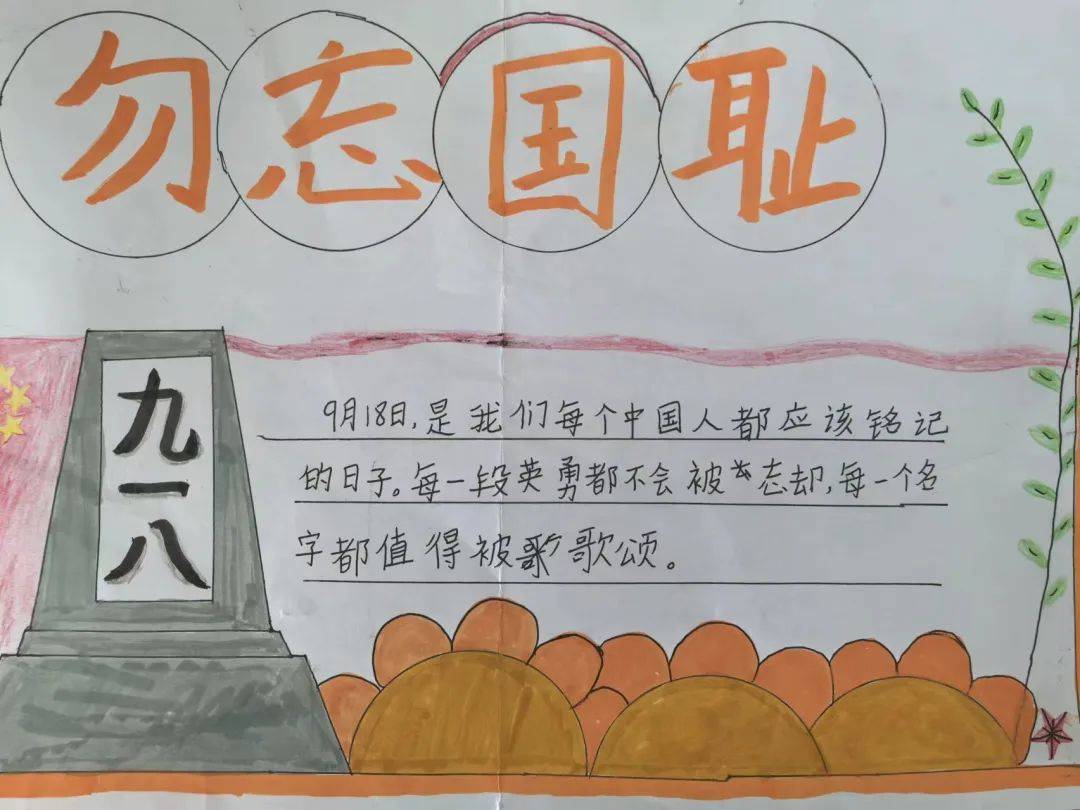 勿忘国耻
九一八
9月18日,是我们每个中国人都应该铭记
的日子。每一段英勇都不会被忘却,每一个名
字都值得被歌颂。